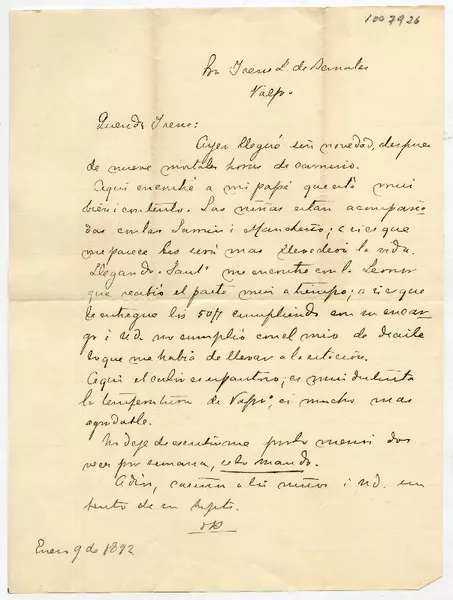 1007926
Sra Irene L. de
Valpo.
Querida Irene:
Ayer llegué sin novedad, despues
de nueve mortales horas de camino.
Aqui encontré a mi papá que está mui
bien i contento. Las niñas estan acompaña
das con las i ; asi es que
me parece les será mas llevadera la vida.
Llegando a Santo me encontre con la Leonor
que recibió el parte mui a tiempo; asi es que
le entregué los 50/ cumpliendo con su encar
go i Ud. no cumplió con el mio de decirle
lo que me habia de llevar a la estacion.
Aqui el calor es espantoso; es mui distinta
la temperatura de Valpo, es mucho mas
agradable.
No deje de escribirme por lo menos dos
veces por semana, se lo mando.
Adios, cariños a los niños i Ud. un
de su
Enero 9 de 1892